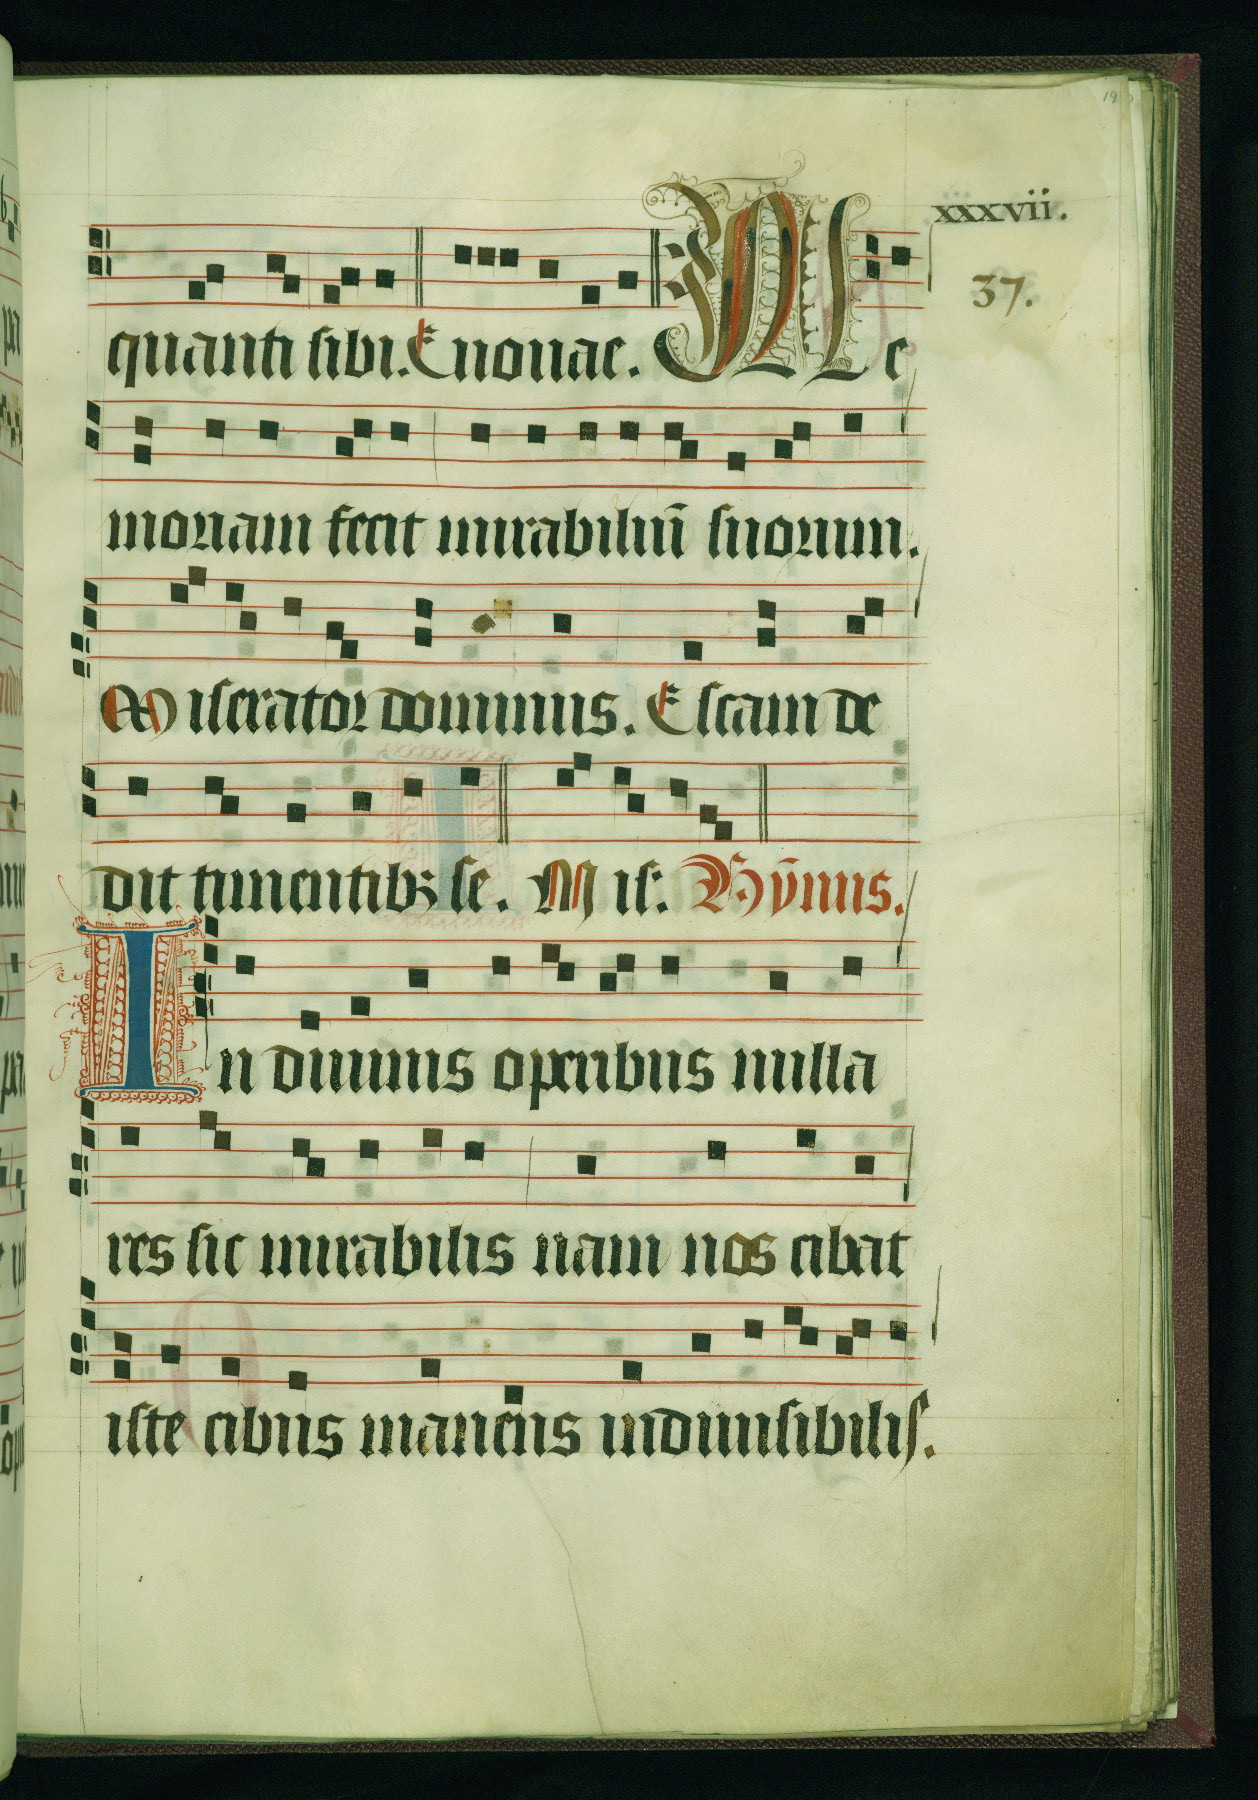 xxxvii.
37.
quanti sibi. Euouae. Me
moriam fecit mirabiliū suorum.
Miserator dominus. Escam de
dit timentibꝫ se. Mis: Hȳmus.
In diuinis operibus nulla
res sic mirabilis nam nos cibat
iste cibus manens indiuisibilis.